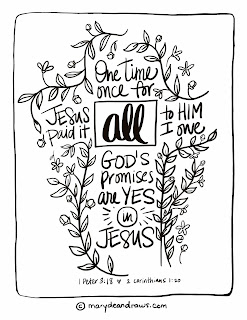 One time
once for
JESUS paid it all to HIM I owe
GOD'S
promises
are YES
in
JESUS
1 Peter 3:18 ♥ 2 Corinthians 1:20
© marydeandraws.com